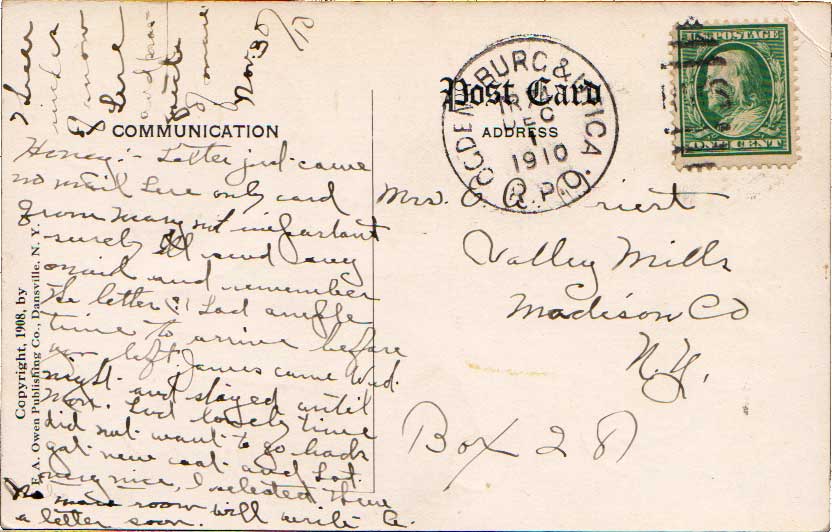 Nov. 30/10
COMMUNICATION
Post Card
ADDRESS
OGDENSBURG & UTICA
DEC
1
1910
R.P.O.
U.S. POSTAGE
ONE CENT
Honey:- Letter just came
no mail here only card
from Mary not important
surely I'll send any
mail and remember
the letter. I had
time to arrive before
you left. James came Wed.
night and stayed until
Mon. Had lovely time
did not want to go back
got new coat and hat
very nice, I selected them
No more room will write
a letter soon.
Mrs.
Valley Mills
Madison Co
N.Y.
Box 28
Copyright, 1908, by
F. A. Owen Publishing Co., Dansville, N. Y.